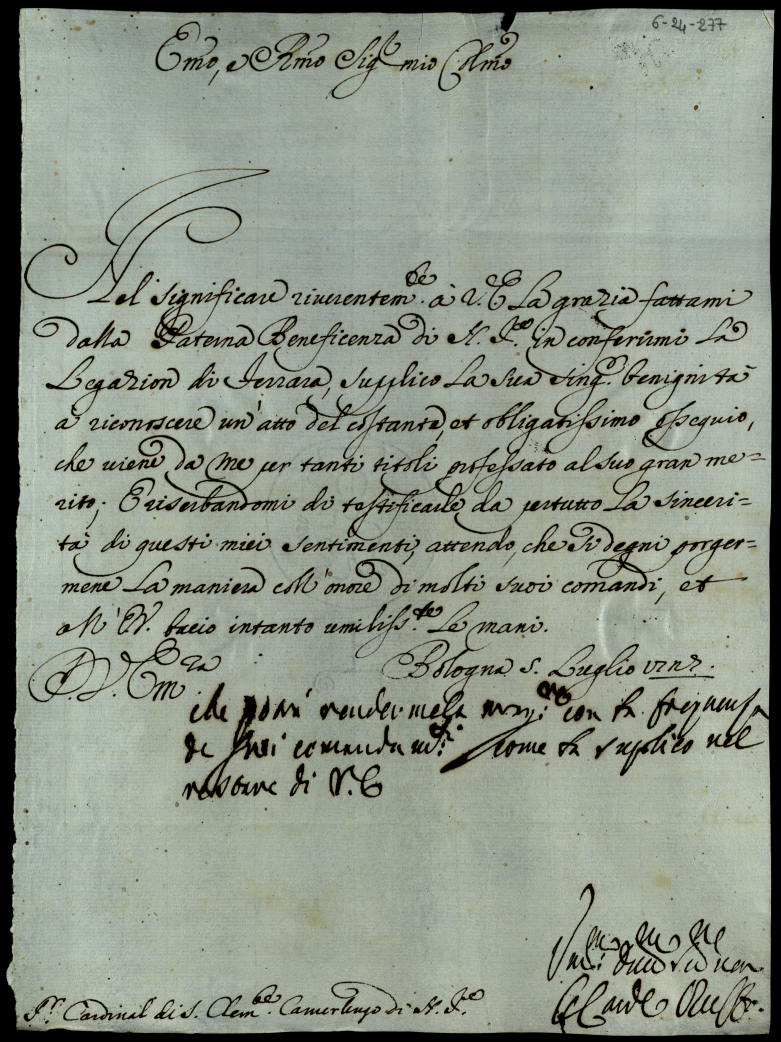 6-24-277
Emo, e Rmo Sig.r mio Colmo
Nel significare riverentem.te à V.E. La grazia fattami
dalla Paterna Beneficenza di N. S.re in conferirmi La
Legazion di Ferrara, supplico La sua sing.r benignità
a riconoscere un'atto del costante, et obligatissimo osseguio,
che viene da me per tanti titoli professato al suo gran me=
rito; E riserbandomi di testificarle da pertutto La sinceri=
tà di questi miei sentimenti, attendo, che Si degni porger=
mene La maniera coll'onore di molti suoi comandi, et
all' E.V. bacio intanto umiliss.te Le mani.
D. V. Em.za Bologna 5. Luglio
che potrà rendermela con la frequenza
de suoi comandam.ti come la suplico nel
restare di V.E.
S.r Cardinal di S. Clem.te Camerlengo di N. S.re
Il Card. Ruffo